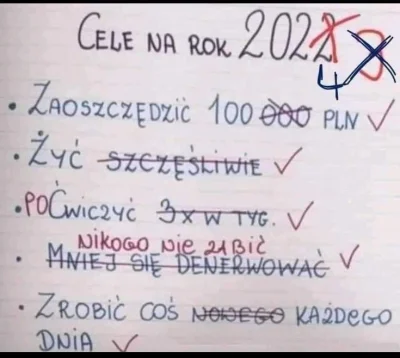 CELE NA ROK 2022 3
4
• ZAOSZCZĘDZIĆ 100 000 PLN ✓
• ŻYĆ SZCZĘŚLIWIE ✓
• POĆWICZYĆ 3X W TYG. ✓
NIKOGO NIE ZABIĆ
• MNIEJ SIĘ DENERWOWAĆ ✓
• ZROBIĆ COŚ NOWEGO KAŻDEGO
DNIA ✓